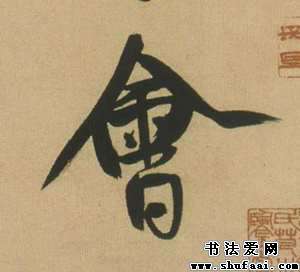 會
书法爱网
www.shufaai.com